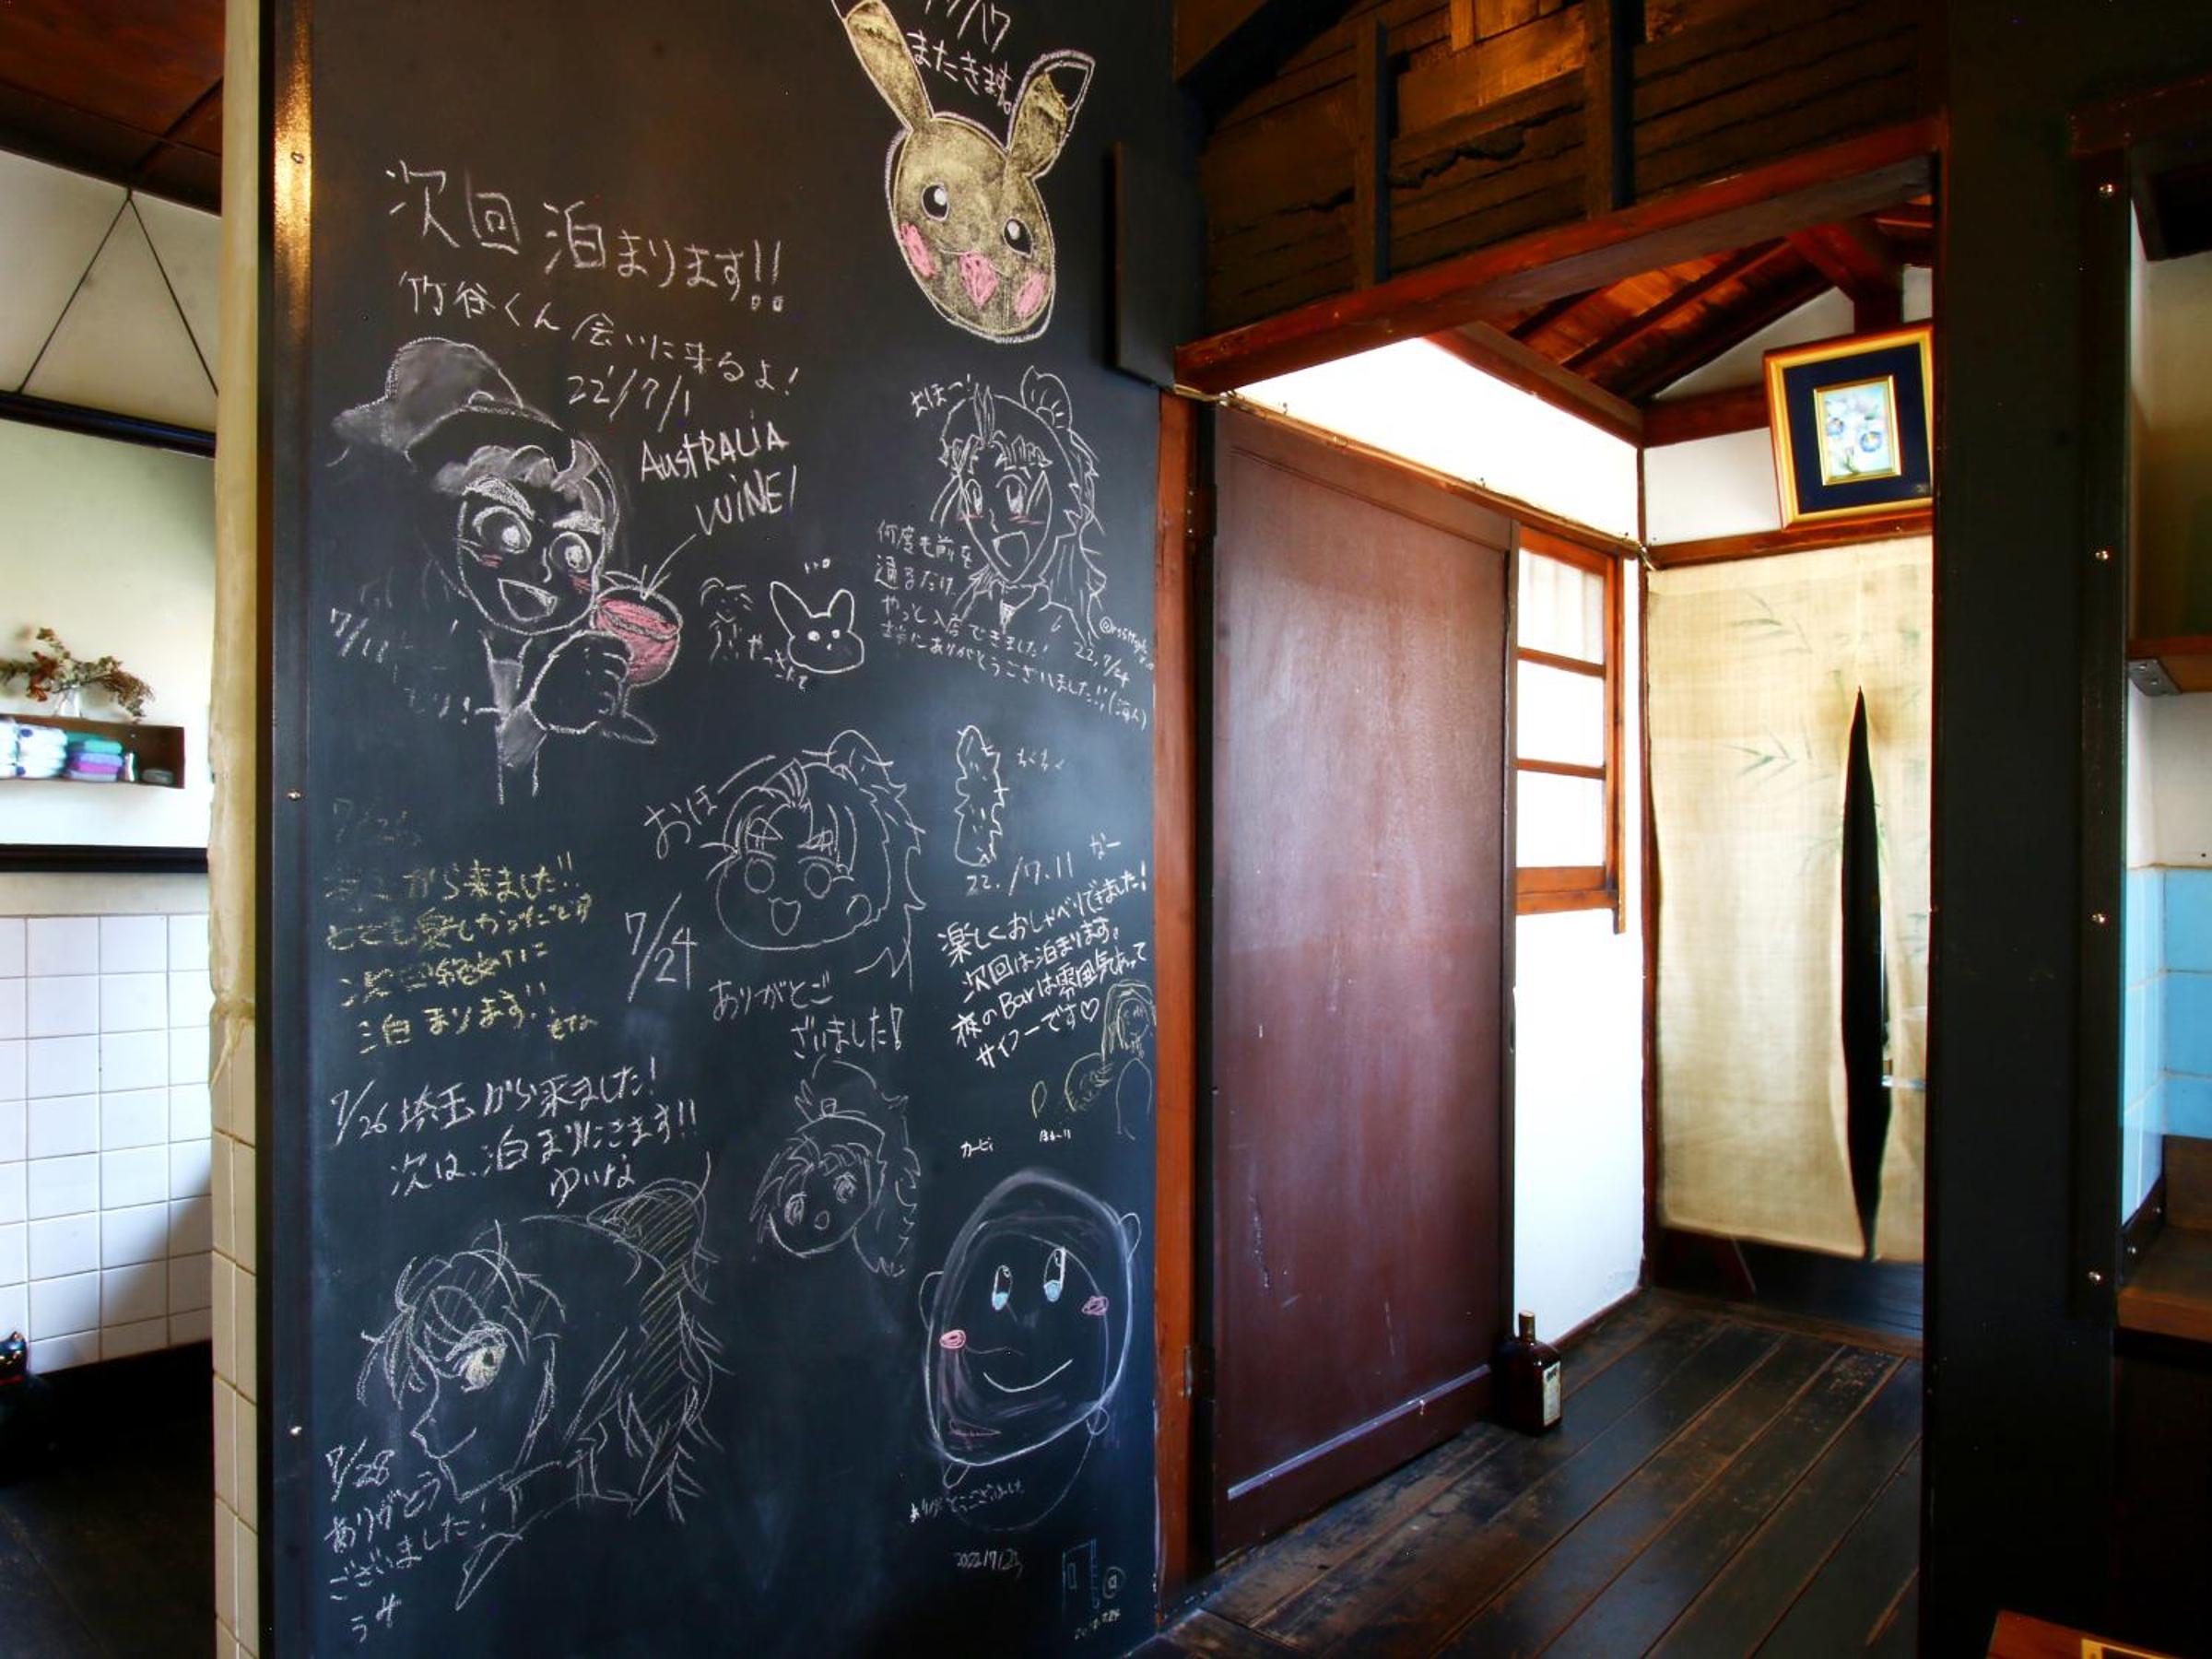 またきます。
次回泊まります!!
竹谷くん会いに来るよ!
22'/7/1
AUSTRALIA
WINE!
よほー!
何度も前を
通るだけ
やっと入店できました!
ありがとうございました!!
22,7/24
やっときた
ちくちく
22./7.11 なー
楽しくおしゃべりできました!
次回は泊まります。
夜のBarは雰囲気あって
サイコーです♡
おほー
7/24
ありがとご
ざいました!
から来ました!!
とても楽しかったです
次回絶対に
泊まります!!
7/26 埼玉から来ました!
次は、泊まりにきます!!
ゆいな
カービィ
7/28
ありがとう
ございました!
うさ
ありがとうございました
2022/7/23